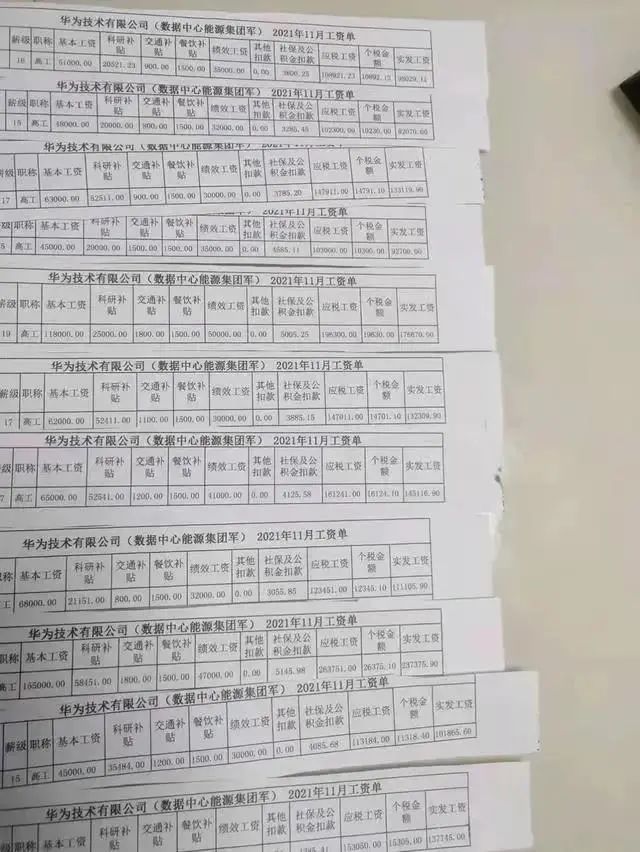 华为技术有限公司（数据中心能源集团军） 2021年11月工资单
薪级 职称 基本工资 科研补贴 交通补贴 餐饮补贴 绩效工资 其他扣款 社保及公积金扣款 应税工资 个税金额 实发工资
16 高工 51000.00 20521.23 900.00 1500.00 35000.00 0.00 3800.25 108921.23 10892.12 98029.11
华为技术有限公司（数据中心能源集团军） 2021年11月工资单
薪级 职称 基本工资 科研补贴 交通补贴 餐饮补贴 绩效工资 其他扣款 社保及公积金扣款 应税工资 个税金额 实发工资
15 高工 48000.00 20000.00 800.00 1500.00 32000.00 0.00 3285.45 102300.00 10230.00 92070.00
薪级 职称 基本工资 科研补贴 交通补贴 餐饮补贴 绩效工资 其他扣款 社保及公积金扣款 应税工资 个税金额 实发工资
17 高工 63000.00 52511.00 900.00 1500.00 30000.00 0.00 3785.20 147911.00 14791.10 133119.90
2021年11月工资单
职称 基本工资 科研补贴 交通补贴 餐饮补贴 绩效工资 其他扣款 社保及公积金扣款 应税工资 个税金额 实发工资
5 高工 45000.00 20000.00 1500.00 1500.00 35000.00 0.00 4585.11 103000.00 10300.00 92700.00
华为技术有限公司（数据中心能源集团军） 2021年11月工资单
薪级 职称 基本工资 科研补贴 交通补贴 餐饮补贴 绩效工资 其他扣款 社保及公积金扣款 应税工资 个税金额 实发工资
19 高工 118000.00 25000.00 1800.00 1500.00 50000.00 0.00 5005.25 196300.00 19630.00 176670.00
华为技术有限公司（数据中心能源集团军） 2021年11月工资单
薪级 职称 基本工资 科研补贴 交通补贴 餐饮补贴 绩效工资 其他扣款 社保及公积金扣款 应税工资 个税金额 实发工资
17 高工 62000.00 52411.00 1100.00 1500.00 30000.00 0.00 3885.15 147011.00 14701.10 132309.90
华为技术有限公司（数据中心能源集团军） 2021年11月工资单
薪级 职称 基本工资 科研补贴 交通补贴 餐饮补贴 绩效工资 其他扣款 社保及公积金扣款 应税工资 个税金额 实发工资
7 高工 65000.00 52541.00 1200.00 1500.00 41000.00 0.00 4125.58 161241.00 16124.10 145116.90
华为技术有限公司（数据中心能源集团军） 2021年11月工资单
职称 基本工资 科研补贴 交通补贴 餐饮补贴 绩效工资 其他扣款 社保及公积金扣款 应税工资 个税金额 实发工资
工 68000.00 21151.00 800.00 1500.00 32000.00 0.00 3055.85 123451.00 12345.10 111105.90
华为技术有限公司（数据中心能源集团军） 2021年11月工资单
职称 基本工资 科研补贴 交通补贴 餐饮补贴 绩效工资 其他扣款 社保及公积金扣款 应税工资 个税金额 实发工资
高工 155000.00 58451.00 1800.00 1500.00 47000.00 0.00 5145.98 263751.00 26375.10 237375.90
华为技术有限公司（数据中心能源集团军） 2021年11月工资单
薪级 职称 基本工资 科研补贴 交通补贴 餐饮补贴 绩效工资 其他扣款 社保及公积金扣款 应税工资 个税金额 实发工资
15 高工 45000.00 35484.00 1200.00 1500.00 30000.00 0.00 4085.68 113184.00 11318.40 101865.60
华为技术有限公司（数据中心能源集团军） 2021年11月工资单
薪级 职称 基本工资 科研补贴 交通补贴 餐饮补贴 绩效工资 其他扣款 社保及公积金扣款 应税工资 个税金额 实发工资
153050.00 15305.00 137745.00